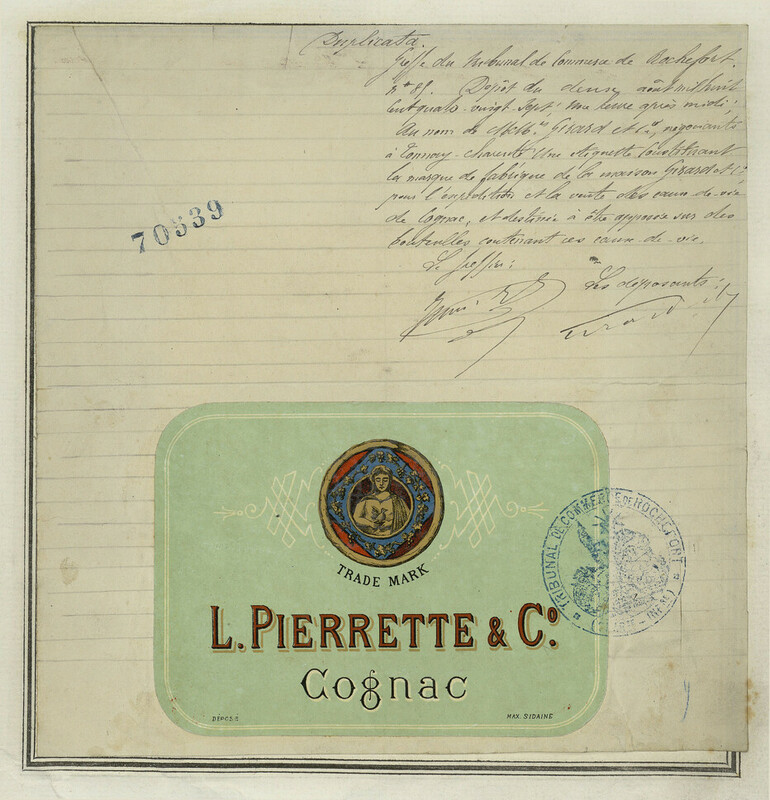 Duplicata.
Greffe du Tribunal de Commerce de Rochefort.
N° 89. Dépôt du deux août mil huit
cent quatre-vingt-sept, une heure après midi;
Au nom de MM. Girard et Cie, négociants
à Tonnay-Charente Une étiquette constituant
la marque de fabrique de la maison Girard et Cie
pour l'expédition et la vente des eaux-de-vie
de Cognac, et destinée à être apposée sur des
bouteilles contenant ces eaux-de-vie.
Le greffier: Les déposants:
70339
TRADE MARK
L. PIERRETTE & Co.
Cognac
DÉPOSÉ MAX. SIDAINE
TRIBUNAL DE COMMERCE DE ROCHEFORT